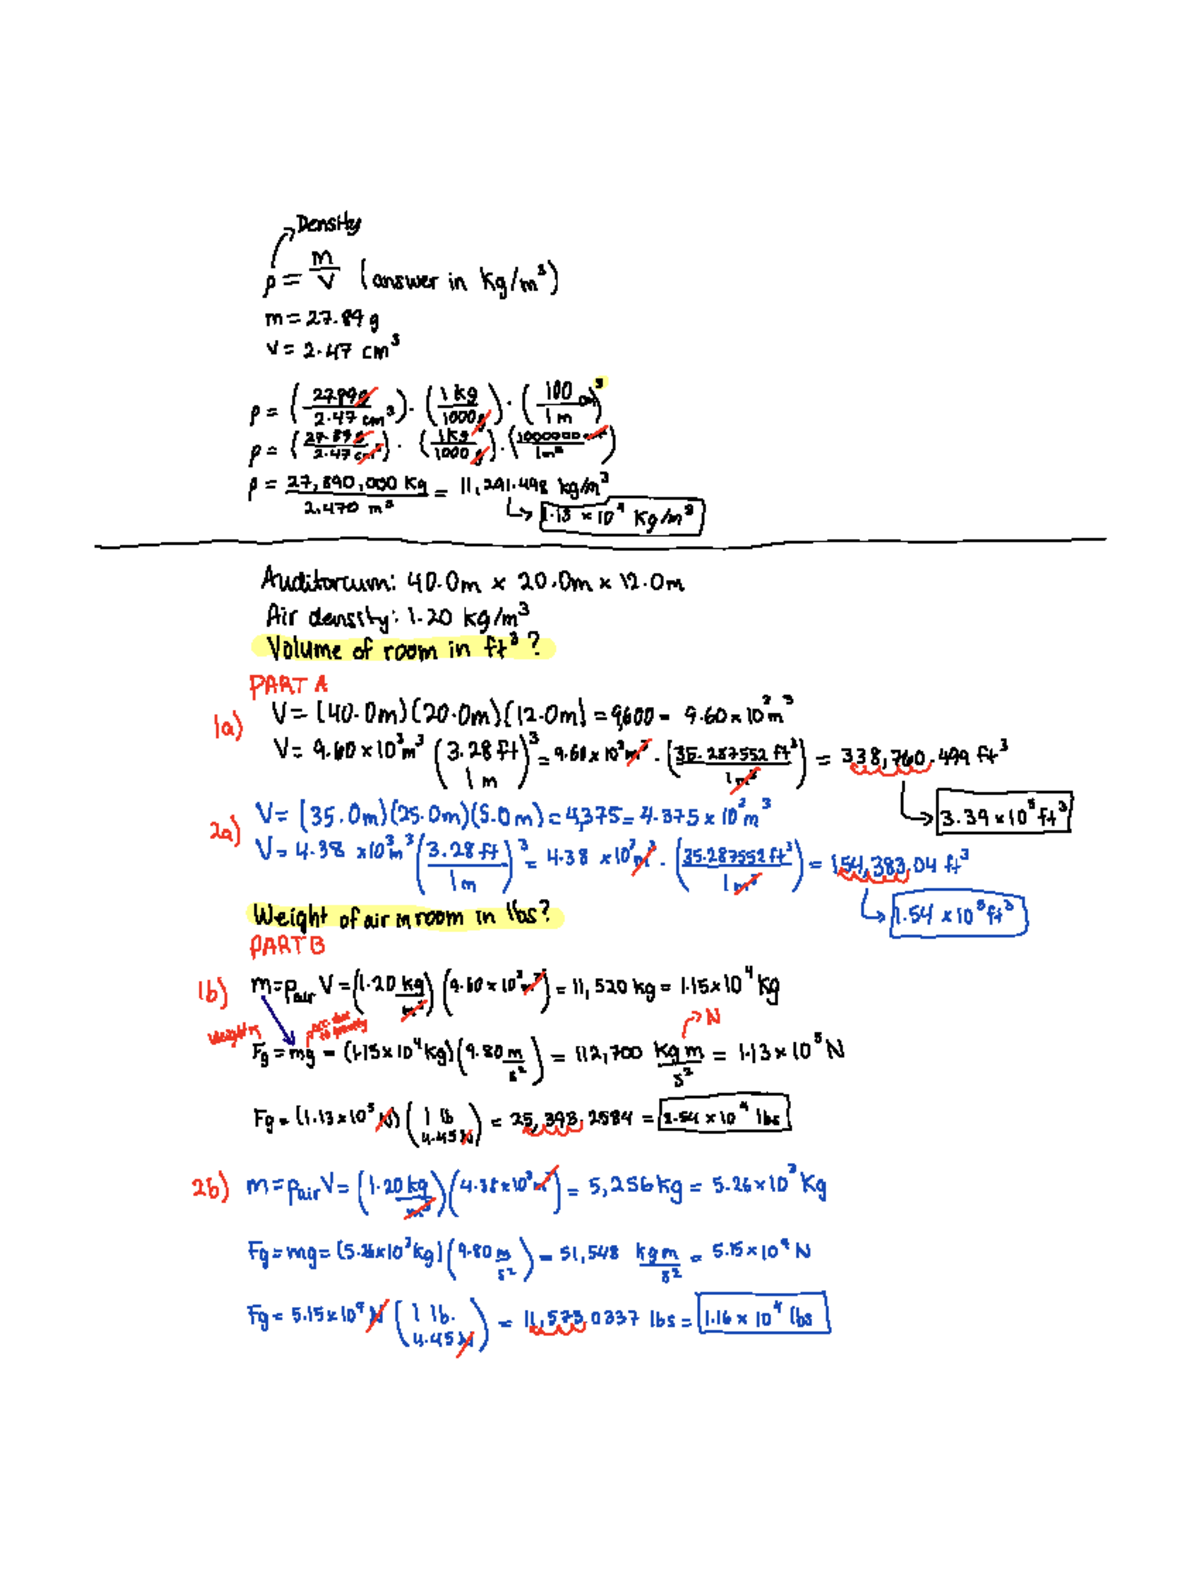 Density
ρ = m/V (answer in kg/m³)
m = 27.89 g
V = 2.47 cm³
ρ = (27.89g / 2.47 cm³) · (1 kg / 1000g) · (100 cm / 1m)³
ρ = (27.89 g / 2.47 cm³) · (1kg / 1000 g) · (1000000 cm³ / 1m³)
ρ = 27,890,000 kg / 2,470 m³ = 11,291.498 kg/m³
1.13 × 10⁴ kg/m³
Auditorium: 40.0m × 20.0m × 12.0m
Air density: 1.20 kg/m³
Volume of room in ft³?
PART A
1a) V = (40.0m)(20.0m)(12.0m) = 9,600 = 9.60 × 10³ m³
V = 9.60 × 10³ m³ (3.28 ft / 1 m)³ = 9.60 × 10³ m³ · (35.287552 ft³ / 1 m³) = 338,760.499 ft³
3.39 × 10⁵ ft³
2a) V = (35.0m)(25.0m)(5.0m) = 4,375 = 4.375 × 10³ m³
V = 4.38 × 10³ m³ (3.28 ft / 1 m)³ = 4.38 × 10³ m³ · (35.287552 ft³ / 1 m³) = 154,383.04 ft³
1.54 × 10⁵ ft³
Weight of air in room in lbs?
PART B
1b) m = ρair V = (1.20 kg / m³)(9.60 × 10³ m³) = 11,520 kg = 1.15 × 10⁴ kg
N
Weight acc. due to gravity
Fg = mg = (1.15 × 10⁴ kg)(9.80 m / s²) = 112,700 kg m / s² = 1.13 × 10⁵ N
Fg = (1.13 × 10⁵ N)(1 lb / 4.45 N) = 25,393.2584 = 2.54 × 10⁴ lbs
2b) m = ρair V = (1.20 kg / m³)(4.38 × 10³ m³) = 5,256 kg = 5.26 × 10³ Kg
Fg = mg = (5.26 × 10³ kg)(9.80 m / s²) = 51,548 kg m / s² = 5.15 × 10⁴ N
Fg = 5.15 × 10⁴ N (1 lb. / 4.45 N) = 11,573.0337 lbs = 1.16 × 10⁴ lbs